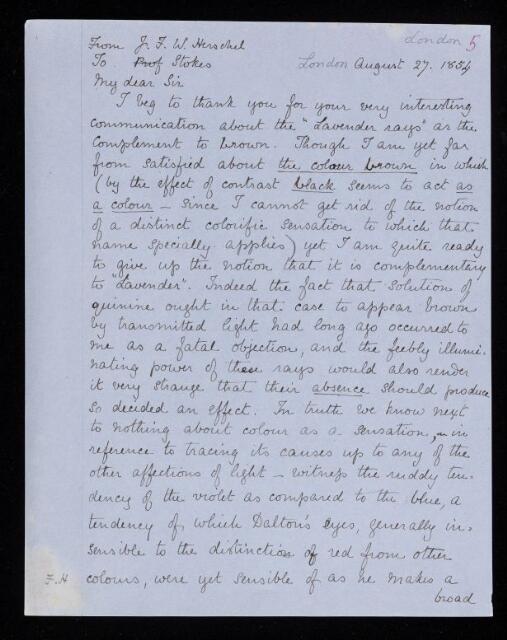 London 5
From J. F. W. Herschel
To Prof Stokes London August 27. 1854
My dear Sir
I beg to thank you for your very interesting
communication about the "Lavender rays" as the
complement to brown. Though I am yet far
from satisfied about the colour brown in which
(by the effect of contrast black seems to act as
a colour – since I cannot get rid of the notion
of a distinct colorific sensation to which that
name specially applies) yet I am quite ready
to give up the notion that it is complementary
to "Lavender". Indeed the fact that solution of
quinine ought in that case to appear brown
by transmitted light had long ago occurred to
me as a fatal objection, and the feebly illumi-
nating power of these rays would also render
it very strange that their absence should produce
so decided an effect. In truth we know next
to nothing about colour as a sensation, in
reference to tracing its causes up to any of the
other affections of light – witness the ruddy ten-
dency of the violet as compared to the blue, a
tendency of which Dalton's eyes, generally in-
sensible to the distinction of red from other
F.H colours, were yet sensible of as he makes a
broad